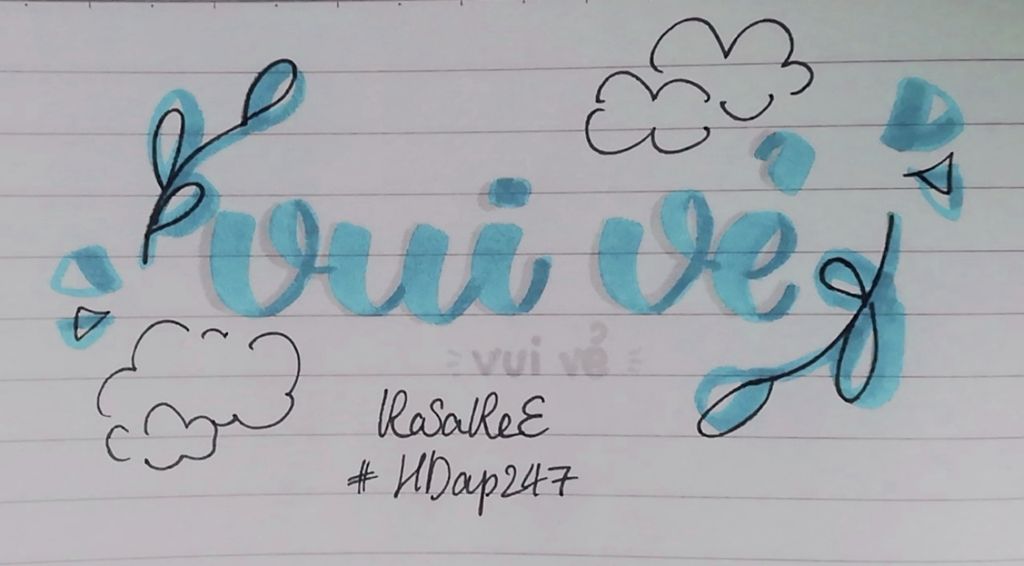 vui vẻ
vui vẻ
KaSaKeE
# HDap247